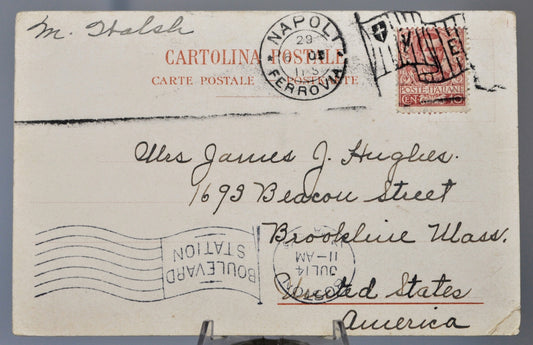 M. Walsh
NAPOLI
29
11-S
FERROVIA
CARTOLINA POSTALE
CARTE POSTALE
POSTE ITALIANE
CEN. 10
Mrs James J. Hughes.
1693 Beacon Street
Brookline Mass.
United States
America
BOULEVARD
STATION
BOSTON,
JUL 14
11-AM